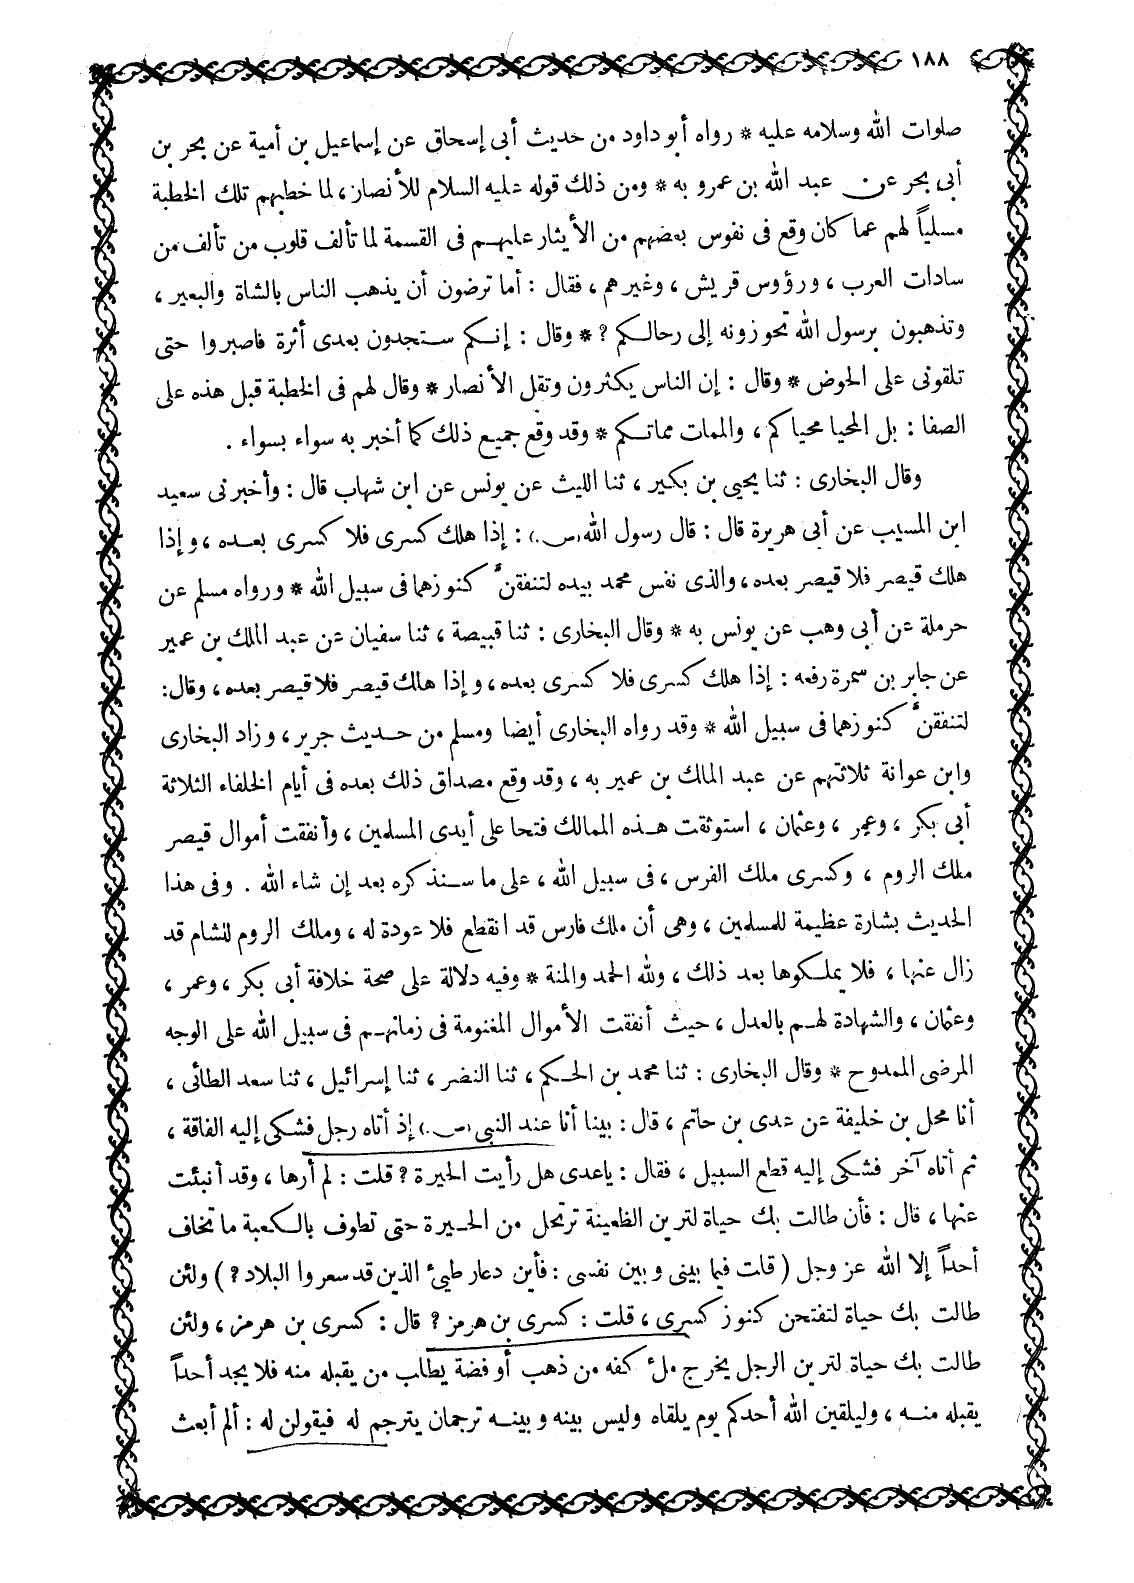 ١٨٨
صلوات الله وسلامه عليه * رواه أبو داود من حديث أبى إسحاق عن إسماعيل بن أمية عن بحر بن
أبى بحر عن عبد الله بن عمرو به * ومن ذلك قوله عليه السلام للأنصار، لما خطبهم تلك الخطبة
مسلياً لهم عما كان وقع فى نفوس بعضهم من الأيثار عليهم فى القسمة لما تألف قلوب من تألف من
سادات العرب ، ورؤوس قريش ، وغيرهم ، فقال : أما ترضون أن يذهب الناس بالشاة والبعير ،
وتذهبون برسول الله تحوزونه إلى رحالكم ؟ * وقال : إنكم ستجدون بعدى أثرة فاصبروا حتى
تلقونى على الحوض * وقال : إن الناس يكثرون وتقل الأنصار * وقال لهم فى الخطبة قبل هذه على
الصفا : بل المحيا محياكم ، والممات مماتكم * وقد وقع جميع ذلك كما أخبر به سواء بسواء .
وقال البخارى : ثنا يحيى بن بكير ، ثنا الليث عن يونس عن ابن شهاب قال : وأخبرنى سعيد
ابن المسيب عن أبى هريرة قال : قال رسول الله (ص.) : إذا هلك كسرى فلا كسرى بعده ، وإذا
هلك قيصر فلا قيصر بعده ، والذى نفس محمد بيده لتنفقنّ كنوزهما فى سبيل الله * ورواه مسلم عن
حرملة عن أبى وهب عن يونس به * وقال البخارى : ثنا قبيصة ، ثنا سفيان عن عبد الملك بن عمير
عن جابر بن سمرة رفعه : إذا هلك كسرى فلا كسرى بعده ، وإذا هلك قيصر فلا قيصر بعده ، وقال:
لتنفقنّ كنوزهما فى سبيل الله * وقد رواه البخارى أيضا ومسلم من حديث جرير ، وزاد البخارى
وابن عوانة ثلاثتهم عن عبد المالك بن عمير به ، وقد وقع مصداق ذلك بعده فى أيام الخلفاء الثلاثة
أبى بكر ، وعمر ، وعثمان ، استوثقت هذه الممالك فتحا على أيدى المسلمين ، وأنفقت أموال قيصر
ملك الروم ، وكسرى ملك الفرس ، فى سبيل الله ، على ما سنذكره بعد إن شاء الله . وفى هذا
الحديث بشارة عظيمة للمسلمين ، وهى أن ملك فارس قد انقطع فلا عودة له ، وملك الروم للشام قد
زال عنها ، فلا يملكوها بعد ذلك ، ولله الحمد والمنة * وفيه دلالة على صحة خلافة أبى بكر ، وعمر ،
وعثمان ، والشهادة لهم بالعدل ، حيث أنفقت الأموال المغنومة فى زمانهم فى سبيل الله على الوجه
المرضى الممدوح * وقال البخارى : ثنا محمد بن الحكم ، ثنا النضر ، ثنا إسرائيل ، ثنا سعد الطائى ،
أنا محل بن خليفة عن عدى بن حاتم ، قال : بينا أنا عند النبى (ص.) إذ أتاه رجل فشكى إليه الفاقة ،
ثم أتاه آخر فشكى إليه قطع السبيل ، فقال : ياعدى هل رأيت الحيرة ؟ قلت : لم أرها ، وقد أنبئت
عنها ، قال : فأن طالت بك حياة لترين الظعينة ترتحل من الحيرة حتى تطوف بالكعبة ما تخاف
أحداً إلا الله عز وجل ( قلت فيما بينى وبين نفسى : فأين دعار طيىء الذين قد سعروا البلاد ؟ ) ولئن
طالت بك حياة لتفتحن كنوز كسرى ، قلت : كسرى بن هرمز ؟ قال : كسرى بن هرمز ، ولئن
طالت بك حياة لترين الرجل يخرج ملء كفه من ذهب أو فضة يطلب من يقبله منه فلا يجد أحداً
يقبله منه ، وليلقين الله أحدكم يوم يلقاه وليس بينه وبينه ترجمان يترجم له فيقولن له : ألم أبعث